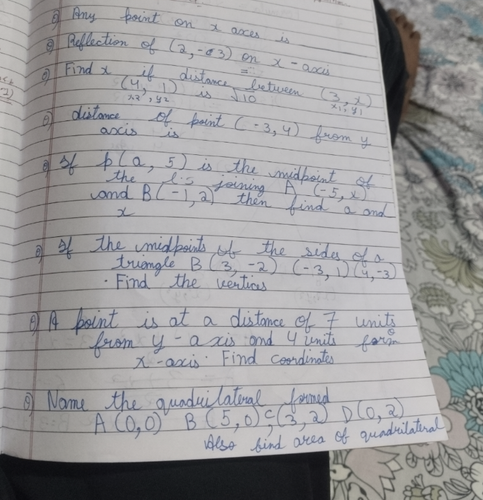 Any point on x axes is
Reflection of (2, -3) on x-axis
Find x if distance between (3, x)
x₁, y₁
(4, 1) is √10
x2, y2
distance of point (-3, 4) from y
axis is
If p(a, 5) is the midpoint of
the l.s joining A (-5, x)
and B(-1, 2) then find a and
x
If the midpoints of the sides of a
triangle B (3, -2) (-3, 1) (4, -3)
. Find the vertices
A point is at a distance of 7 units
from y-axis and 4 units form
x-axis. Find coordinates
Name the quadrilateral formed
A (0,0) B (5,0) C (3, 2) D (0, 2)
Also find area of quadrilateral